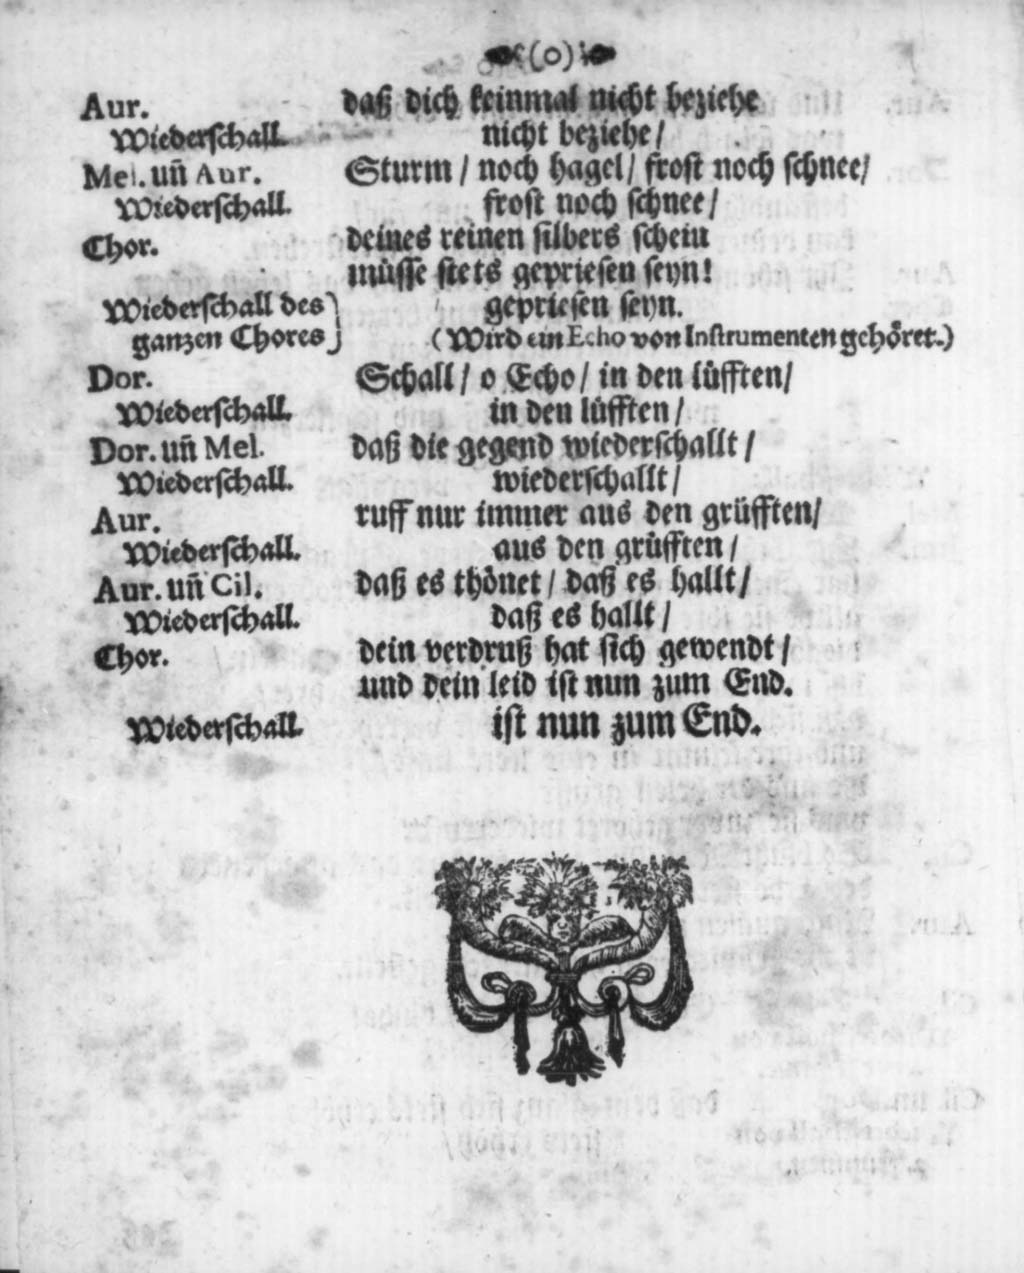 (o)
Aur. daß dich keinmal nicht beziehe
Wiederschall. nicht beziehe/
Mel. uñ Aur. Sturm/ noch hagel/ frost noch schnee/
Wiederschall. frost noch schnee/
Chor. deines reinen silbers schein
müsse stets gepriesen seyn!
Wiederschall des gepriesen seyn.
ganzen Chores (Wird ein Echo von Instrumenten gehöret.)
Dor. Schall/ o Echo/ in den lüfften/
Wiederschall. in den lüfften/
Dor. uñ Mel. daß die gegend wiederschallt/
Wiederschall. wiederschallt/
Aur. ruff nur immer aus den grüfften/
Wiederschall. aus den grüfften/
Aur. uñ Cil. daß es thönet/ daß es hallt/
Wiederschall. daß es hallt/
Chor. dein verdruß hat sich gewendt/
und dein leid ist nun zum End.
Wiederschall. ist nun zum End.